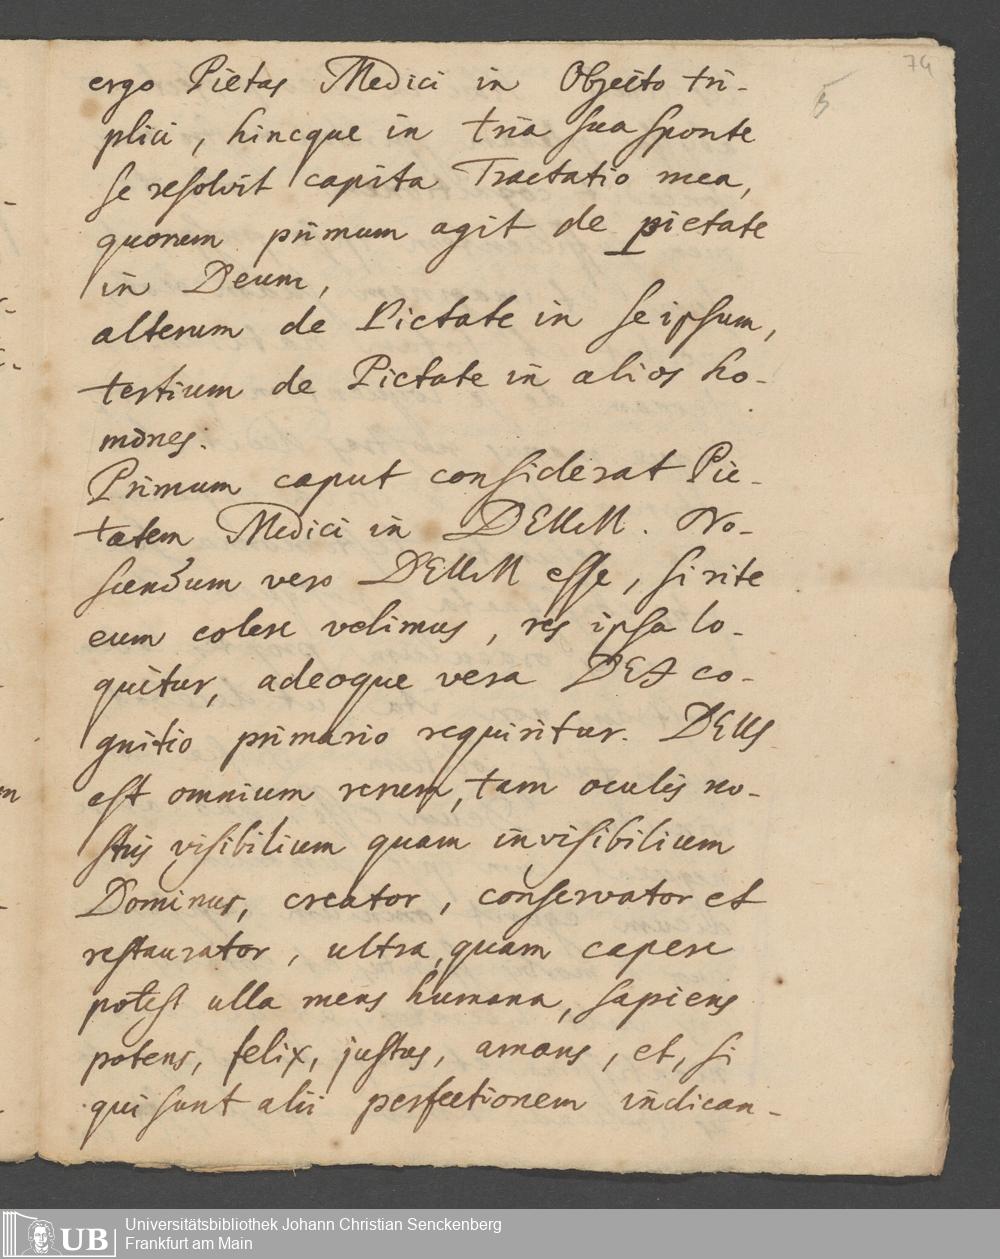 74
5
ergo Pietas Medici in Objecto tri-
plici, hincque in tria sua sponte
se resolvit capita Tractatio mea,
quorum primum agit de pietate
in Deum,
alterum de Pietate in se ipsum,
tertium de Pietate in alios ho-
mines.
Primum caput considerat Pie-
tatem Medici in DEUM. No-
scendum vero DEUM esse, si rite
eum colere velimus, res ipsa lo-
quitur, adeoque vera DEI co-
gnitio primario requiritur. DEUS
est omnium rerum, tam oculis no-
stris visibilium quam invisibilium
Dominus, creator, conservator et
restaurator, ultra, quam capere
potest ulla mens humana, sapiens
potens, felix, justus, amans, et, si
qui sunt alii perfectionem indican-
UB
Universitätsbibliothek Johann Christian Senckenberg
Frankfurt am Main